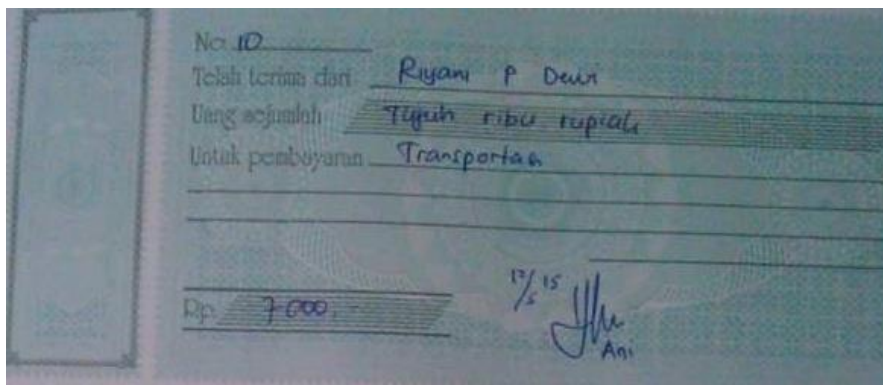 No. 10
Telah terima dari Riyani P Dewi
Uang sejumlah Tujuh ribu rupiah
Untuk pembayaran Transportasi
17/5 15
Rp. 7 000,-
Ani